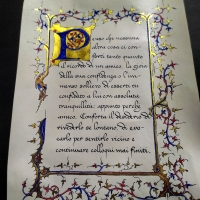 Penso che nessuna
altra cosa ci con-
forti tanto quanto
il ricordo di un amico, la gioia
della sua confidenza o l'im-
menso sollievo di esserti con
confidato a lui con assoluta
tranquillità: appunto perchè
amico. Conforta il desiderio di
rivederlo se lontano, di evo-
carlo per sentirlo vicino e
continuare colloqui mai finiti.